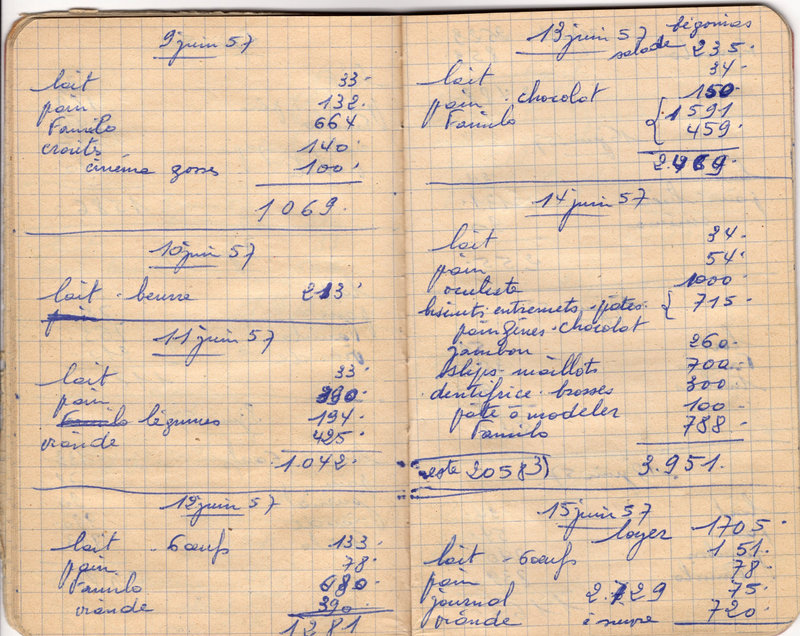 9 juin 57
lait 33.
pain 132.
Familo 664
craits 140.
cinéma gosses 100.
1069.
10 juin 57
lait - beurre 213
pain
11 juin 57
lait 33.
pain 390.
Familo légumes 194.
viande 425.
1.042.
12 juin 57
lait - 6 oeufs 133.
pain 78.
Familo 680.
viande 390.
1281
13 juin 57
bégonias
salade 235.
lait 34.
pain - chocolat 150.
Familo { 1591
459.
2.469.
14 juin 57
lait 34.
pain 54.
oculiste 1000.
biscuits. entremets. pâtes. { 715.
pain gênes. chocolat
jambon 260.
slips. maillots 700.
dentifrice. brosses 300
pâte à modeler 100.
Familo 788.
reste 20583) 3.951.
15 juin 57
loyer 1705.
lait - 6 oeufs 151.
pain 78.
journal 2.729 75.
viande à suivre 720.